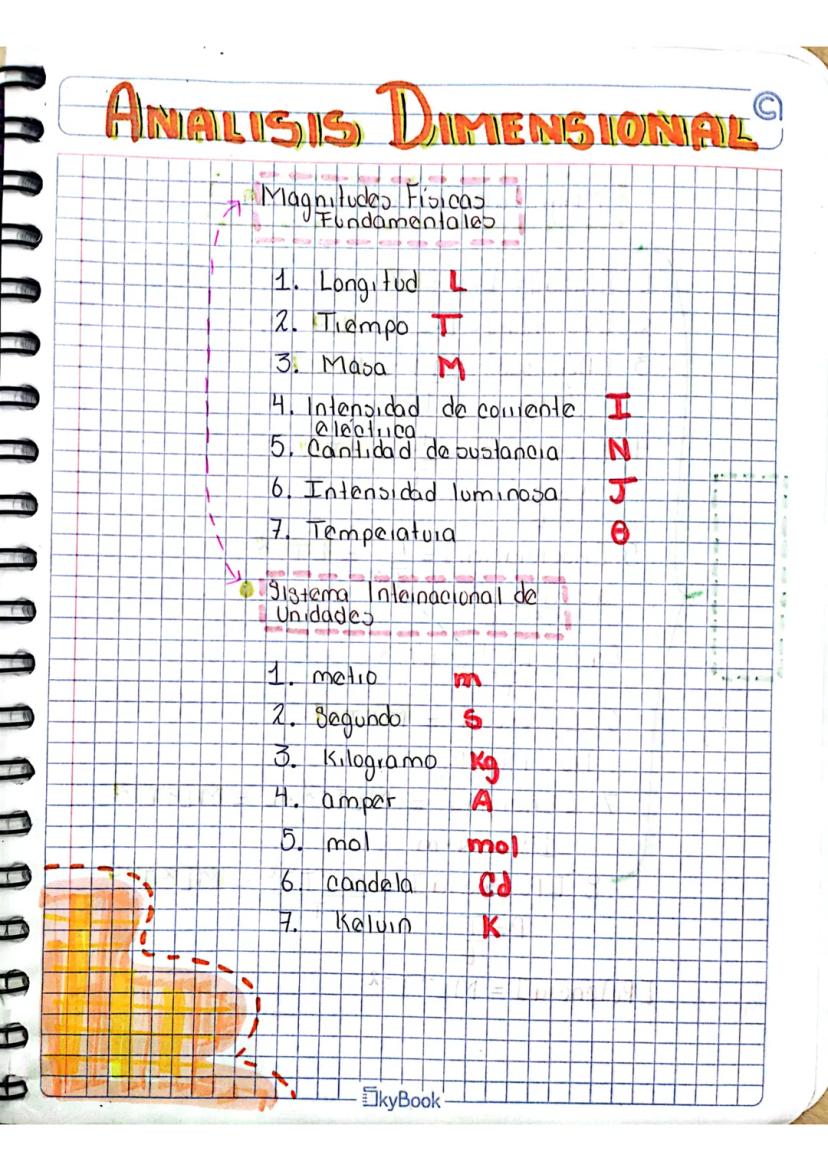 ANALISIS DIMENSIONAL
Magnitudes Físicas
Fundamentales
1. Longitud L
2. Tiempo T
3. Masa M
4. Intensidad de corriente I
electrica
5. Cantidad de sustancia N
6. Intensidad luminosa J
7. Temperatura θ
Sistema Internacional de
Unidades
1. metro m
2. Segundo s
3. Kilogramo Kg
4. amper A
5. mol mol
6. candela Cd
7. Kelvin K
SkyBook